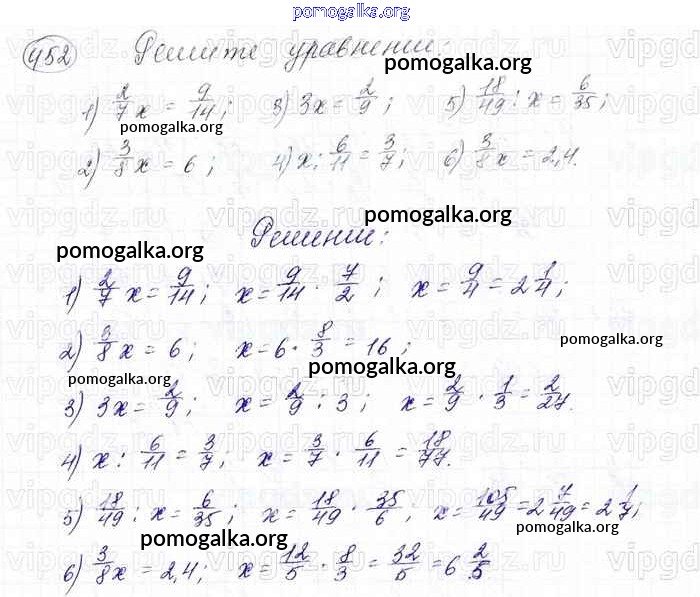 pomogalka.org
452 Решите уравнении:
pomogalka.org
1) 2/7 x = 9/14; 3) 3x = 2/9; 5) 18/49 : x = 6/35;
pomogalka.org
2) 3/8 x = 6; 4) x : 6/11 = 3/7; 6) 3/8 x = 2,4.
pomogalka.org
Решении:
pomogalka.org
1) 2/7 x = 9/14; x = 9/14 · 7/2; x = 9/4 = 2 1/4;
pomogalka.org
2) 3/8 x = 6; x = 6 · 8/3 = 16;
pomogalka.org pomogalka.org
3) 3x = 2/9; x = 2/9 : 3; x = 2/9 · 1/3 = 2/27.
4) x : 6/11 = 3/7; x = 3/7 · 6/11 = 18/77.
5) 18/49 : x = 6/35; x = 18/49 · 35/6; x = 105/49 = 2 7/49 = 2 1/7;
pomogalka.org pomogalka.org
6) 3/8 x = 2,4; x = 12/5 · 8/3 = 32/5 = 6 2/5.